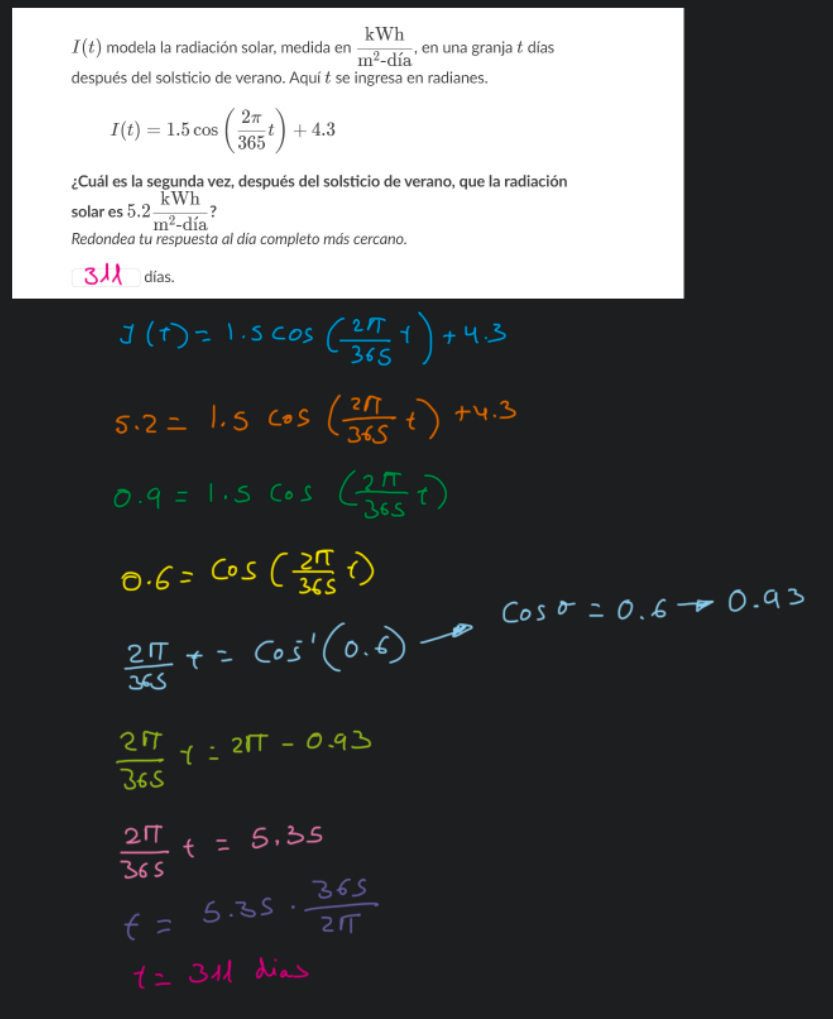 I(t) modela la radiación solar, medida en kWh/m²-día, en una granja t días
después del solsticio de verano. Aquí t se ingresa en radianes.
I(t) = 1.5 cos (2π/365 t) + 4.3
¿Cuál es la segunda vez, después del solsticio de verano, que la radiación
solar es 5.2 kWh/m²-día?
Redondea tu respuesta al día completo más cercano.
311 días.
I(t) = 1.5 cos (2π/365 t) + 4.3
5.2 = 1.5 cos (2π/365 t) + 4.3
0.9 = 1.5 cos (2π/365 t)
0.6 = cos (2π/365 t)
2π/365 t = cos⁻¹(0.6) → cos σ = 0.6 → 0.93
2π/365 t = 2π - 0.93
2π/365 t = 5.35
t = 5.35 · 365/2π
t = 311 dias